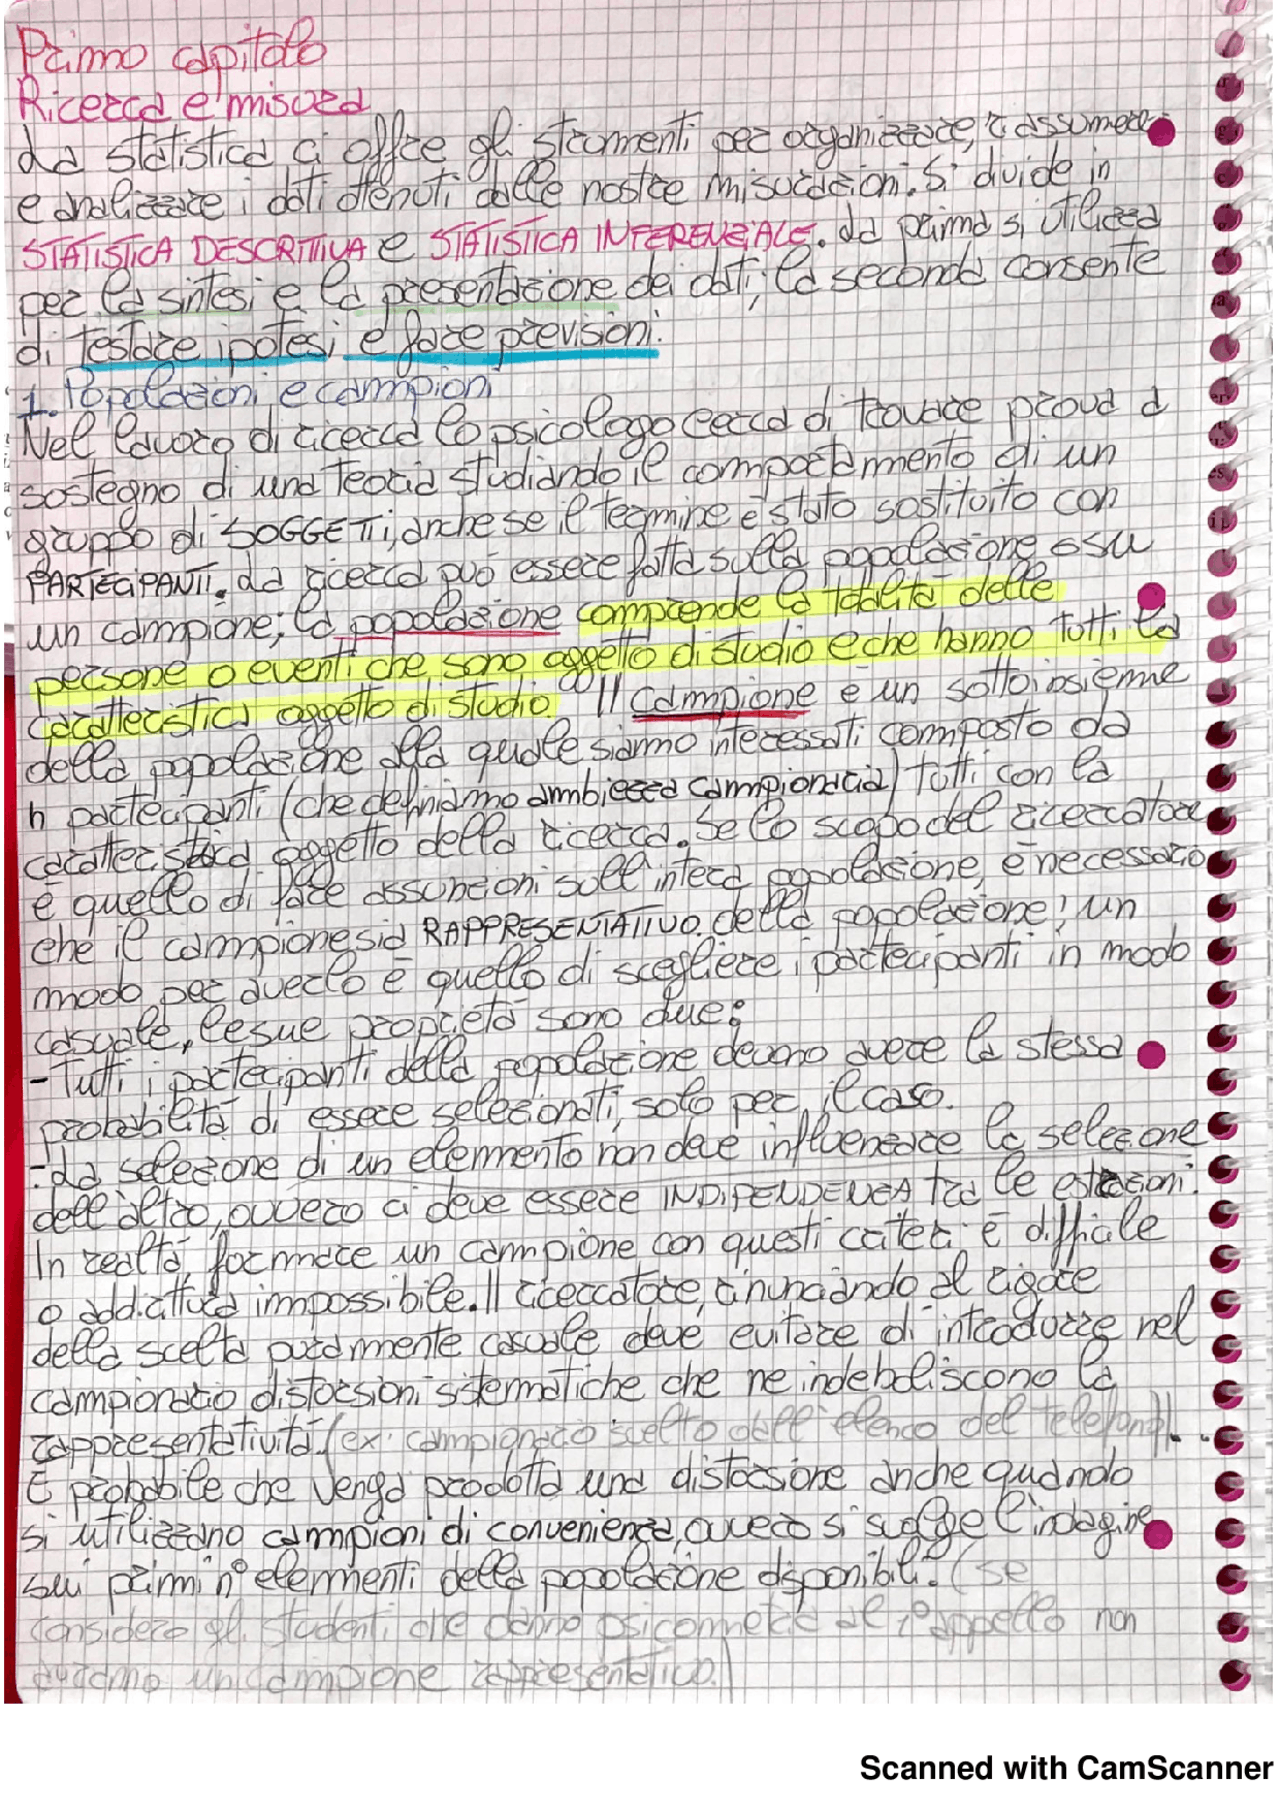 Primo capitolo
Ricerca e misura
La statistica ci offre gli strumenti per organizzare, riassumere
e analizzare i dati ottenuti dalle nostre misurazioni. Si divide in
STATISTICA DESCRITTIVA e STATISTICA INFERENZIALE. La prima si utilizza
per la sintesi e la presentazione dei dati; la seconda consente
di testare ipotesi e fare previsioni.
1. Popolazioni e campioni
Nel lavoro di ricerca lo psicologo cerca di trovare prova a
sostegno di una teoria studiando il comportamento di un
gruppo di SOGGETTI, anche se il termine è stato sostituito con
PARTECIPANTI. La ricerca può essere fatta sulla popolazione o su
un campione; la popolazione comprende la totalità delle
persone o eventi che sono oggetto di studio e che hanno tutti la
caratteristica oggetto di studio. Il campione è un sottoinsieme
della popolazione alla quale siamo interessati composto da
n partecipanti (che definiamo ambiezza campionaria) tutti con la
caratteristica oggetto della ricerca. Se lo scopo del ricercatore
è quello di fare assunzioni sull'intera popolazione, è necessario
che il campione sia RAPPRESENTATIVO della popolazione; un
modo per averlo è quello di scegliere i partecipanti in modo
casuale, le sue proprietà sono due:
- Tutti i partecipanti della popolazione devono avere la stessa
probabilità di essere selezionati, solo per il caso.
- La selezione di un elemento non deve influenzare la selezione
dell'altro, ovvero ci deve essere INDIPENDENZA tra le estrazioni.
In realtà formare un campione con questi criteri è difficile
o addirittura impossibile. Il ricercatore, rinunciando al rigore
della scelta puramente casuale deve evitare di introdurre nel
campionario distorsioni sistematiche che ne indeboliscono la
rappresentatività. (ex: campionario scelto dall'elenco del telefono).
È probabile che venga prodotta una distorsione anche quando
si utilizzano campioni di convenienza, ovvero si svolge l'indagine
sui primi n° elementi della popolazione disponibili. (se
considero gli studenti che danno psicometria al 1° appello non
avremo un campione rappresentativo.)
Scanned with CamScanner